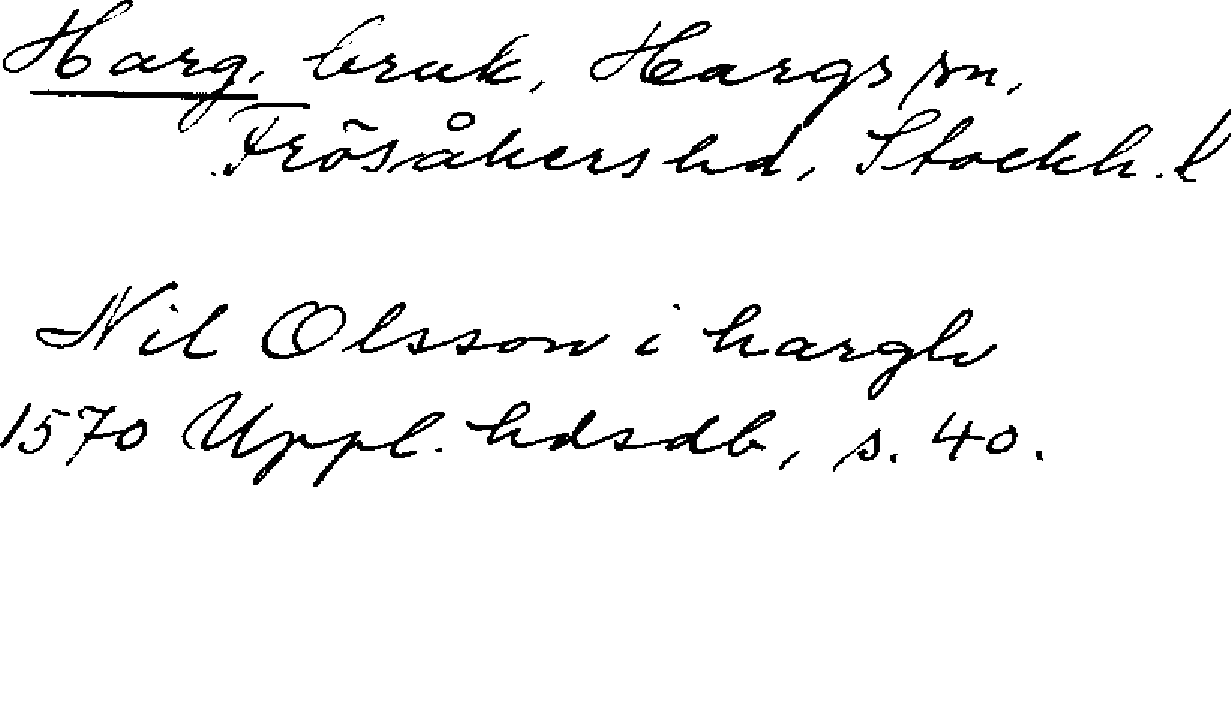 Harg, bruk, Hargs sn,
Frösåkers hd, Stockh. l
Nil Olsson i hargh
1570 Uppl. hdsdb, s. 40.